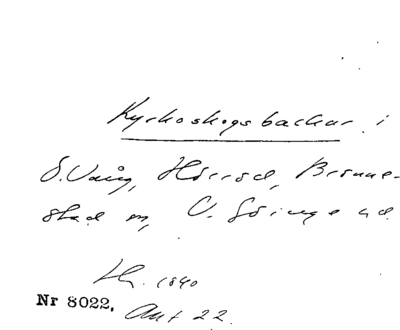 Kyrkoskogsbackar i
Ö. Vång, Hörröd, Brönne-
stad sn, V. Göinge hd.
1840
Nr 8022. Akt 22.